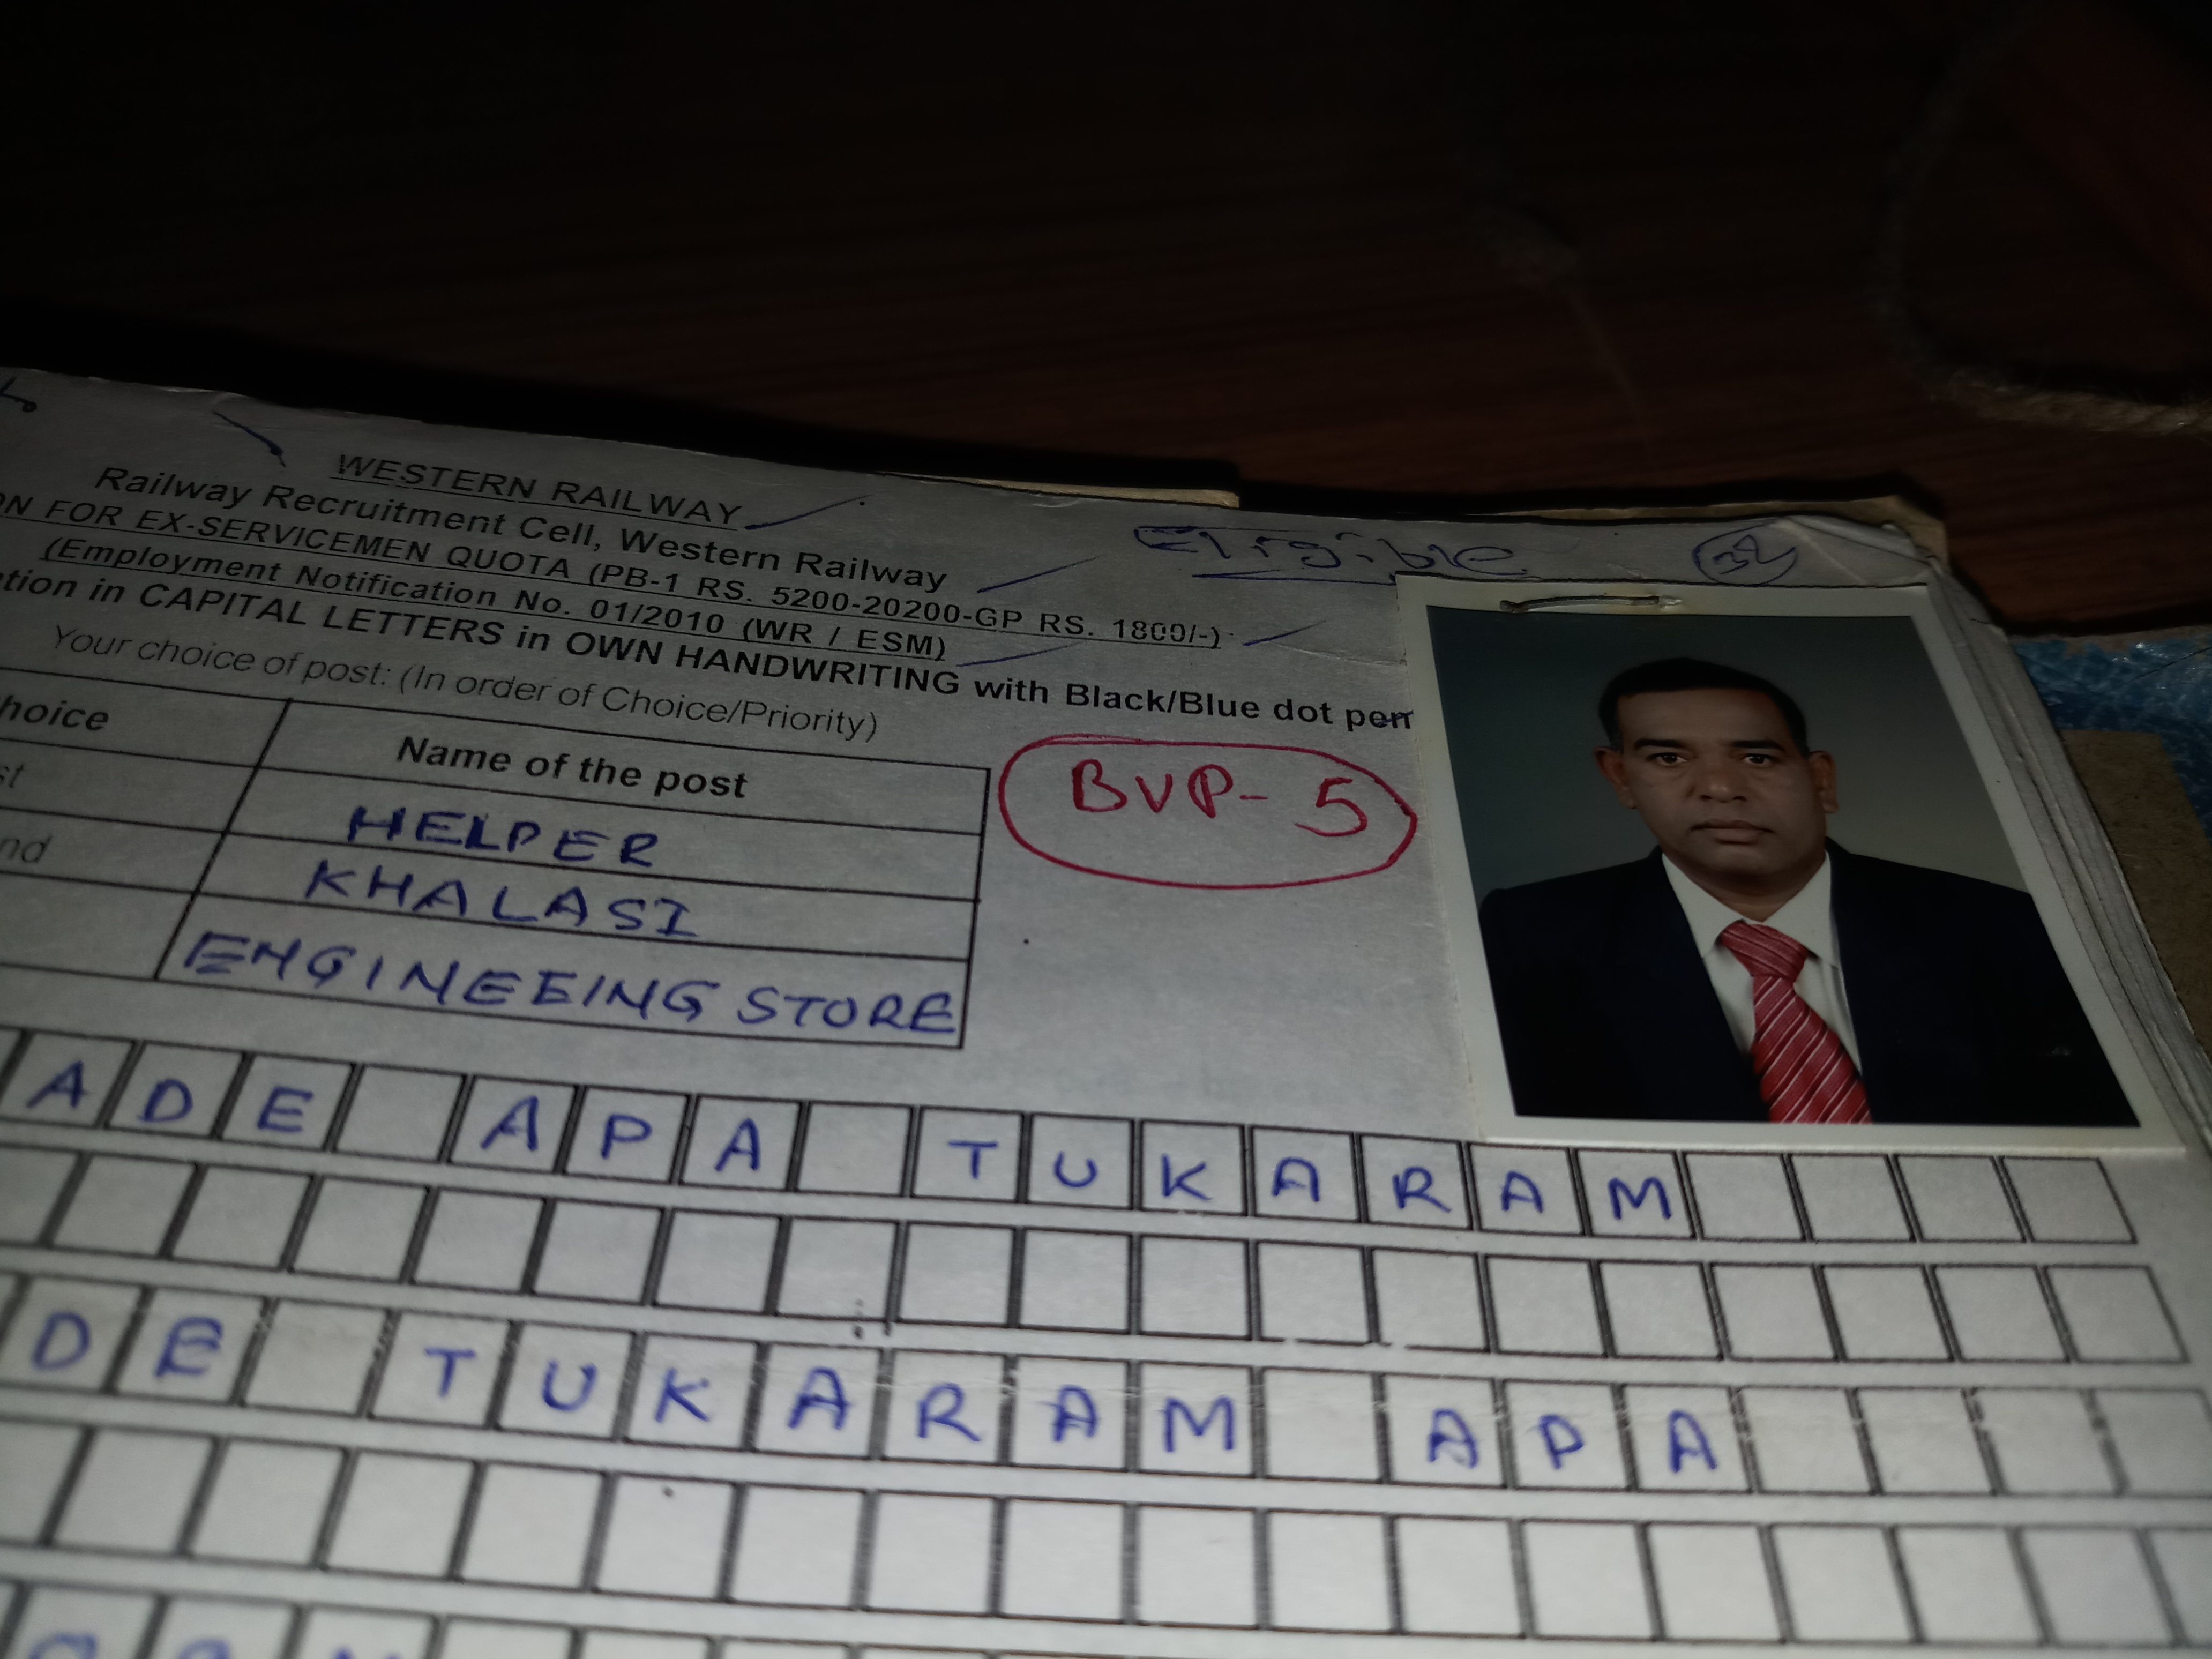 WESTERN RAILWAY
Railway Recruitment Cell, Western Railway
Eligible 32
ON FOR EX-SERVICEMEN QUOTA (PB-1 RS. 5200-20200-GP RS. 1800/-)
(Employment Notification No. 01/2010 (WR / ESM)
tion in CAPITAL LETTERS in OWN HANDWRITING with Black/Blue dot pen
Your choice of post: (In order of Choice/Priority)
hoice Name of the post
st HELPER
BVP- 5
nd KHALASI
ENGINEEING STORE
ADE APA TUKARAM
DE TUKARAM APA